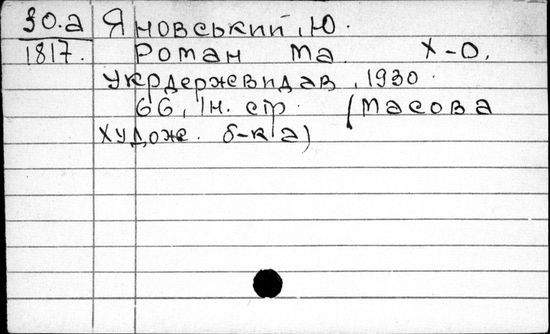 30.а Яновський, Ю.
1817. Роман Ма. Х-О,
Укрдержвидав, 1930.
66, 1н. стр. (Масова
худож. б-ка)